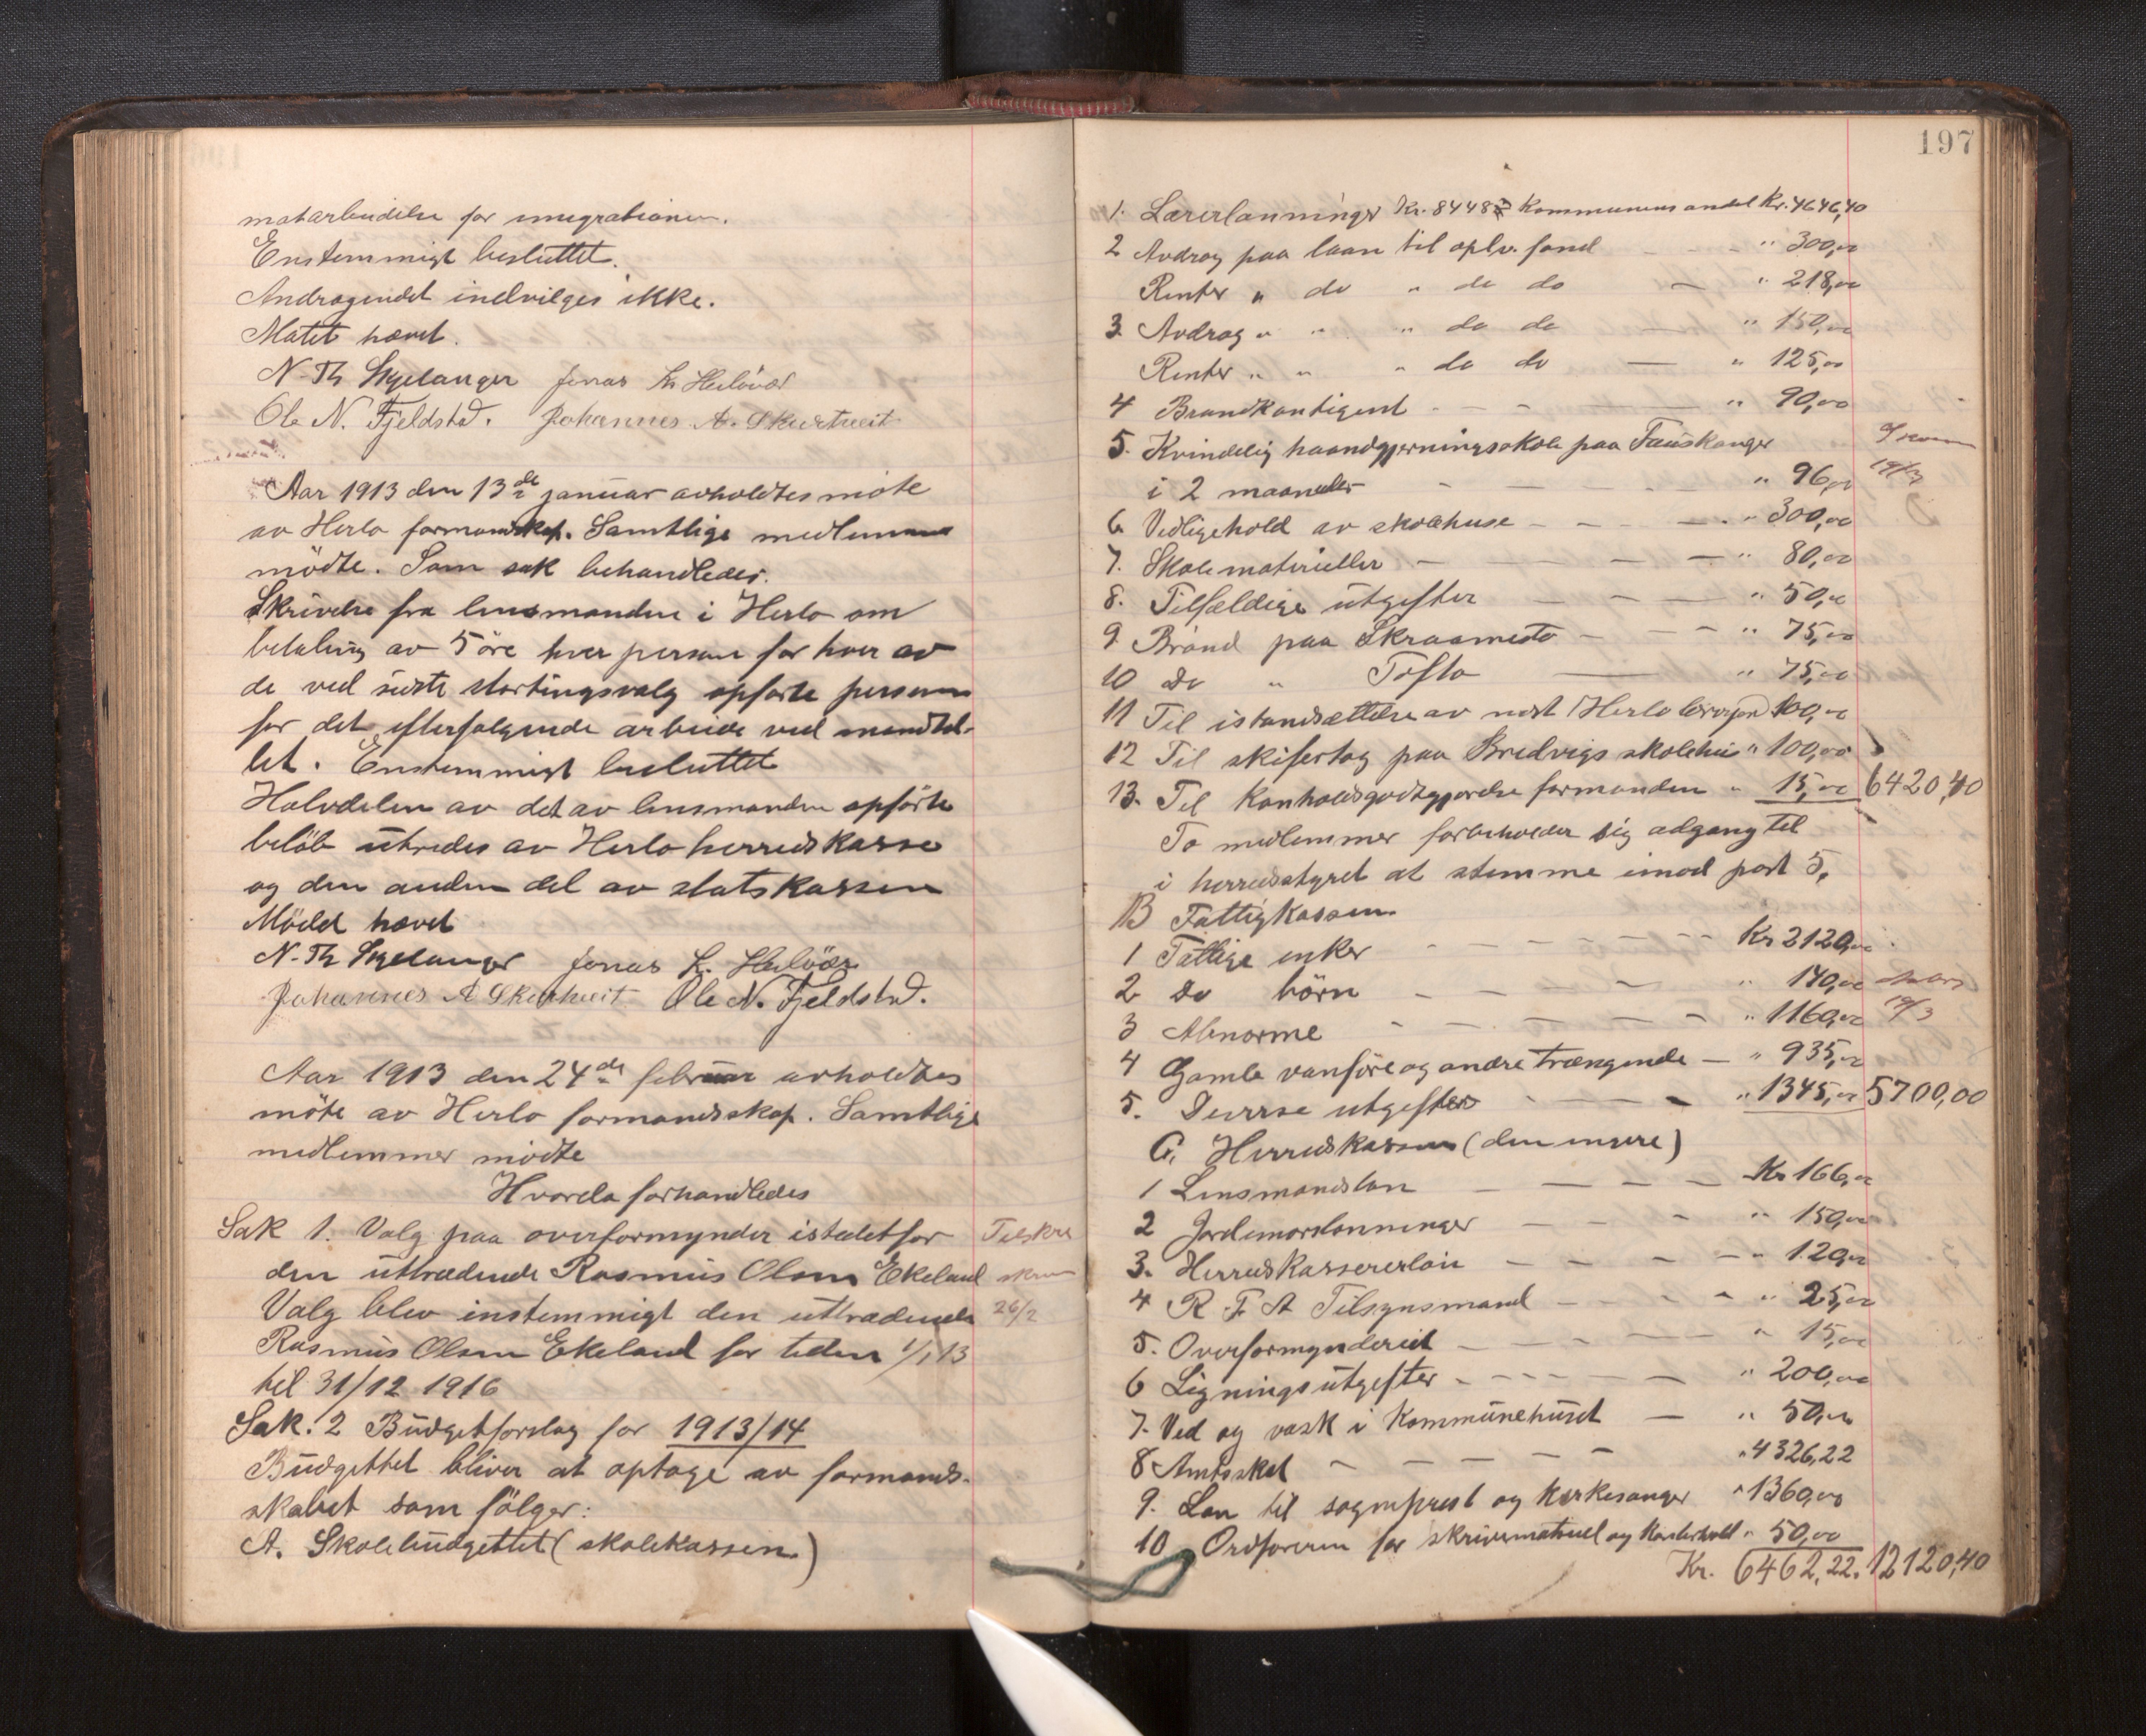 motarbeidelse for emigrationen.
Enstemmigt besluttet.
Andragendet indvilges ikke.
Møtet hævet.
N. Th Skjelanger Jonas L. Herlövær
Ole N. Fjeldstad. Johannes A. Skurtveit
Aar 1913 den 13de januar avholdtes möte
av Herlo formandskap. Samtlige medlemmer
mödte. Som sak behandledes.
Skrivelse fra lensmanden i Herlo om
betaling av 5 öre hver person for hver av
de ved siste stortingsvalg opförte personer
for det efterfölgende arbeide ved mandtal-
let. Enstemmigt besluttet
Halvdelen av det av lensmanden opförte
belöb utredes av Herlo herredskasse
og den anden del av statskassen
Mödet hævet
N. Th Skjelanger Jonas L. Herlövær
Johannes A Skurtveit Ole N. Fjeldstad.
Aar 1913 den 24de februar avholdtes
möte av Herlo formandsskap. Samtlige
medlemmer mödte
Hvorda forhandledes
Sak 1. Valg paa overformynder istedetfor
den uttrædende Rasmus Olsen Ekeland
Valg blev instemmigt den uttrædende
26/2
Rasmus Olsen Ekeland for tiden 1/1 13
til 31/12 1916
Sak. 2 Budgetforslag for 1913/14
Budgettet bliver at optage av formand-
skabet som fölger:
A. Skolebudgettet (skolekassen)
197
1. Lærerlönninger Kr. 8448 Kommunens andel Kr. 4646,40
2 Avdrag paa laan til oplv. fond - - " 300,00
Renter " do " do do — " 218,00
3 Avdrag " " " do do — " 150,00
Renter " " " do do — " 125,00
4 Brandkontigent - - — " 90,00
5. Kvindelig haandgjerningsskole paa Fauskanger
i 2 maaneder - — — - " 96,00
6 Vedligehold av skolehuse - - - — " 300,00
7. Skolematerieller - — - — " 80,00
8. Tilfældige utgifter — — — " 50,00
9 Brönd paa Skraamestö - — - " 75,00
10 do " Tofta — " 75,00
11 Til istandsættelse av nöst 100,00
12 Til skifertag paa Bredvigs skolehus " 100,00
13. Til Konholdsgodtgjörelse formanden " 15,00 6420,40
To medlemmer forbeholder sig adgang til
i herredsstyret at stemme imod post 5.
B Fattigkassen
1 Fattige enker - - - - - - Kr 2120,00
2 do börn - - - - " 140,00
3 Abnorme - - - - - " 1160,00
4 Gamle vanföre og andre trængende — " 935,00
5. Diverse utgifter - — - " 1345,00 5700,00
C. Herredskassen (den indre)
1 Lensmandslön — — - - Kr 166,00
2 Jordmorslönninger — - - " 150,00
3. Herredskassererlön - — - — " 120,00
4 R. F. A Tilsynsmand - - - - " 25,00
5. Overformynderiet - - - — " 15,00
6 Ligningsutgifter - - - - — " 200,00
7. Ved og vask i Kommunehuset — " 50,00
8 Amtsskat — — — — " 4326,22
9. Lön til sogneprest og kirkesanger " 1360,00
10 Ordföreren for skrivematriel og Kontorhold " 50,00
Kr. 6462,22. 12120,40